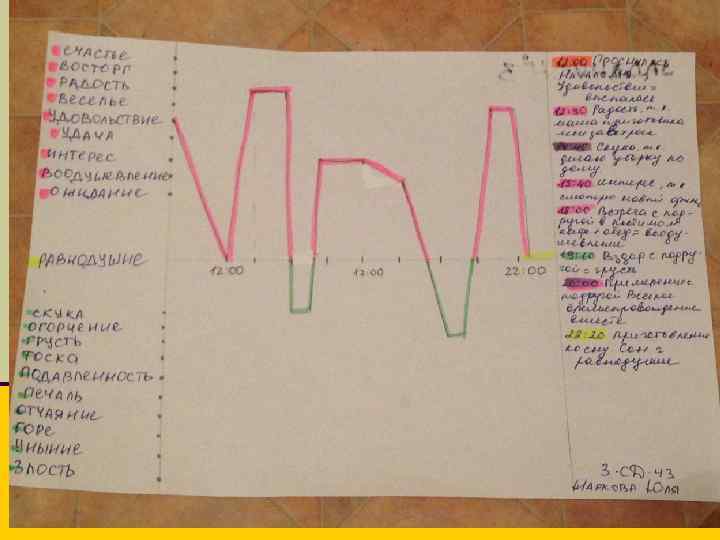 СЧАСТЬЕ
ВОСТОРГ
РАДОСТЬ
ВЕСЕЛЬЕ
УДОВОЛЬСТВИЕ
УДАЧА
ИНТЕРЕС
ВООДУШЕВЛЕНИЕ
ОЖИДАНИЕ
РАВНОДУШИЕ
СКУКА
ОГОРЧЕНИЕ
ГРУСТЬ
ТОСКА
ПОДАВЛЕННОСТЬ
ПЕЧАЛЬ
ОТЧАЯНИЕ
ГОРЕ
УНЫНИЕ
ЗЛОСТЬ
12:00
22:00
Проснулась
Удовольствие =
выспалась
12:30 Радость, т.к.
мама приготовила
мне завтрак
Скука, т.к
делаю уборку по
дому
15:40 Интерес, т.к
смотрю новый
18:00 Встреча с под-
ругой
кафе + = вооду-
шевление
Вздор с подру-
гой = грусть
Примирение с
подругой Веселое
времяпровождение
вместе
22:20 Приготовление
ко сну Сон =
равнодушие
3-СД-43
Маркова Юля